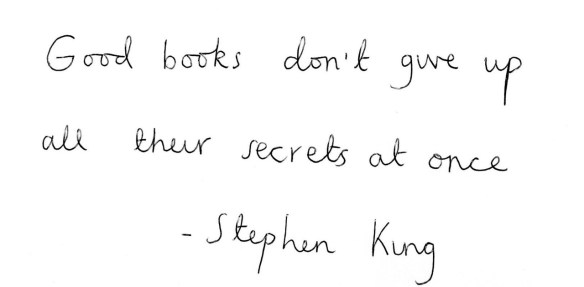 Good books don't give up
all their secrets at once
- Stephen King